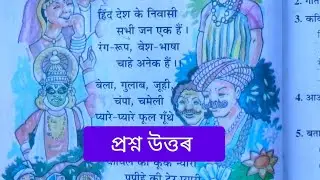 हिंद देश के निवासी
सभी जन एक हैं।
रंग-रूप, वेश-भाषा
चाहे अनेक हैं।
बेला, गुलाब, जूही,
चंपा, चमेली
प्यारे-प्यारे फूल गूँथे
প্ৰশ্ন উত্তৰ
पपीहे की टेर प्यारी
2.
3.
4.
5.